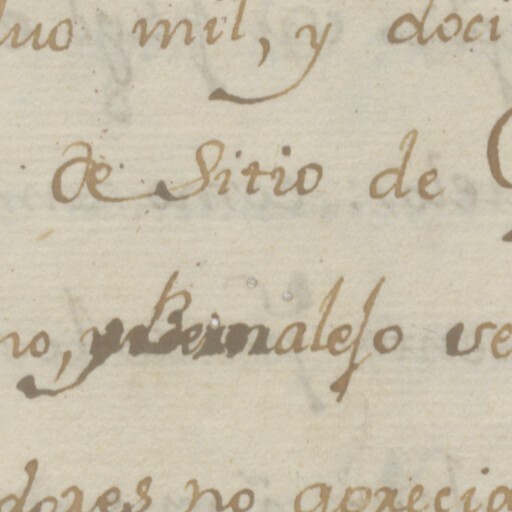 luo mil, y doci
de Sitio de
no, y Bernaleso ve
dores no aprecia